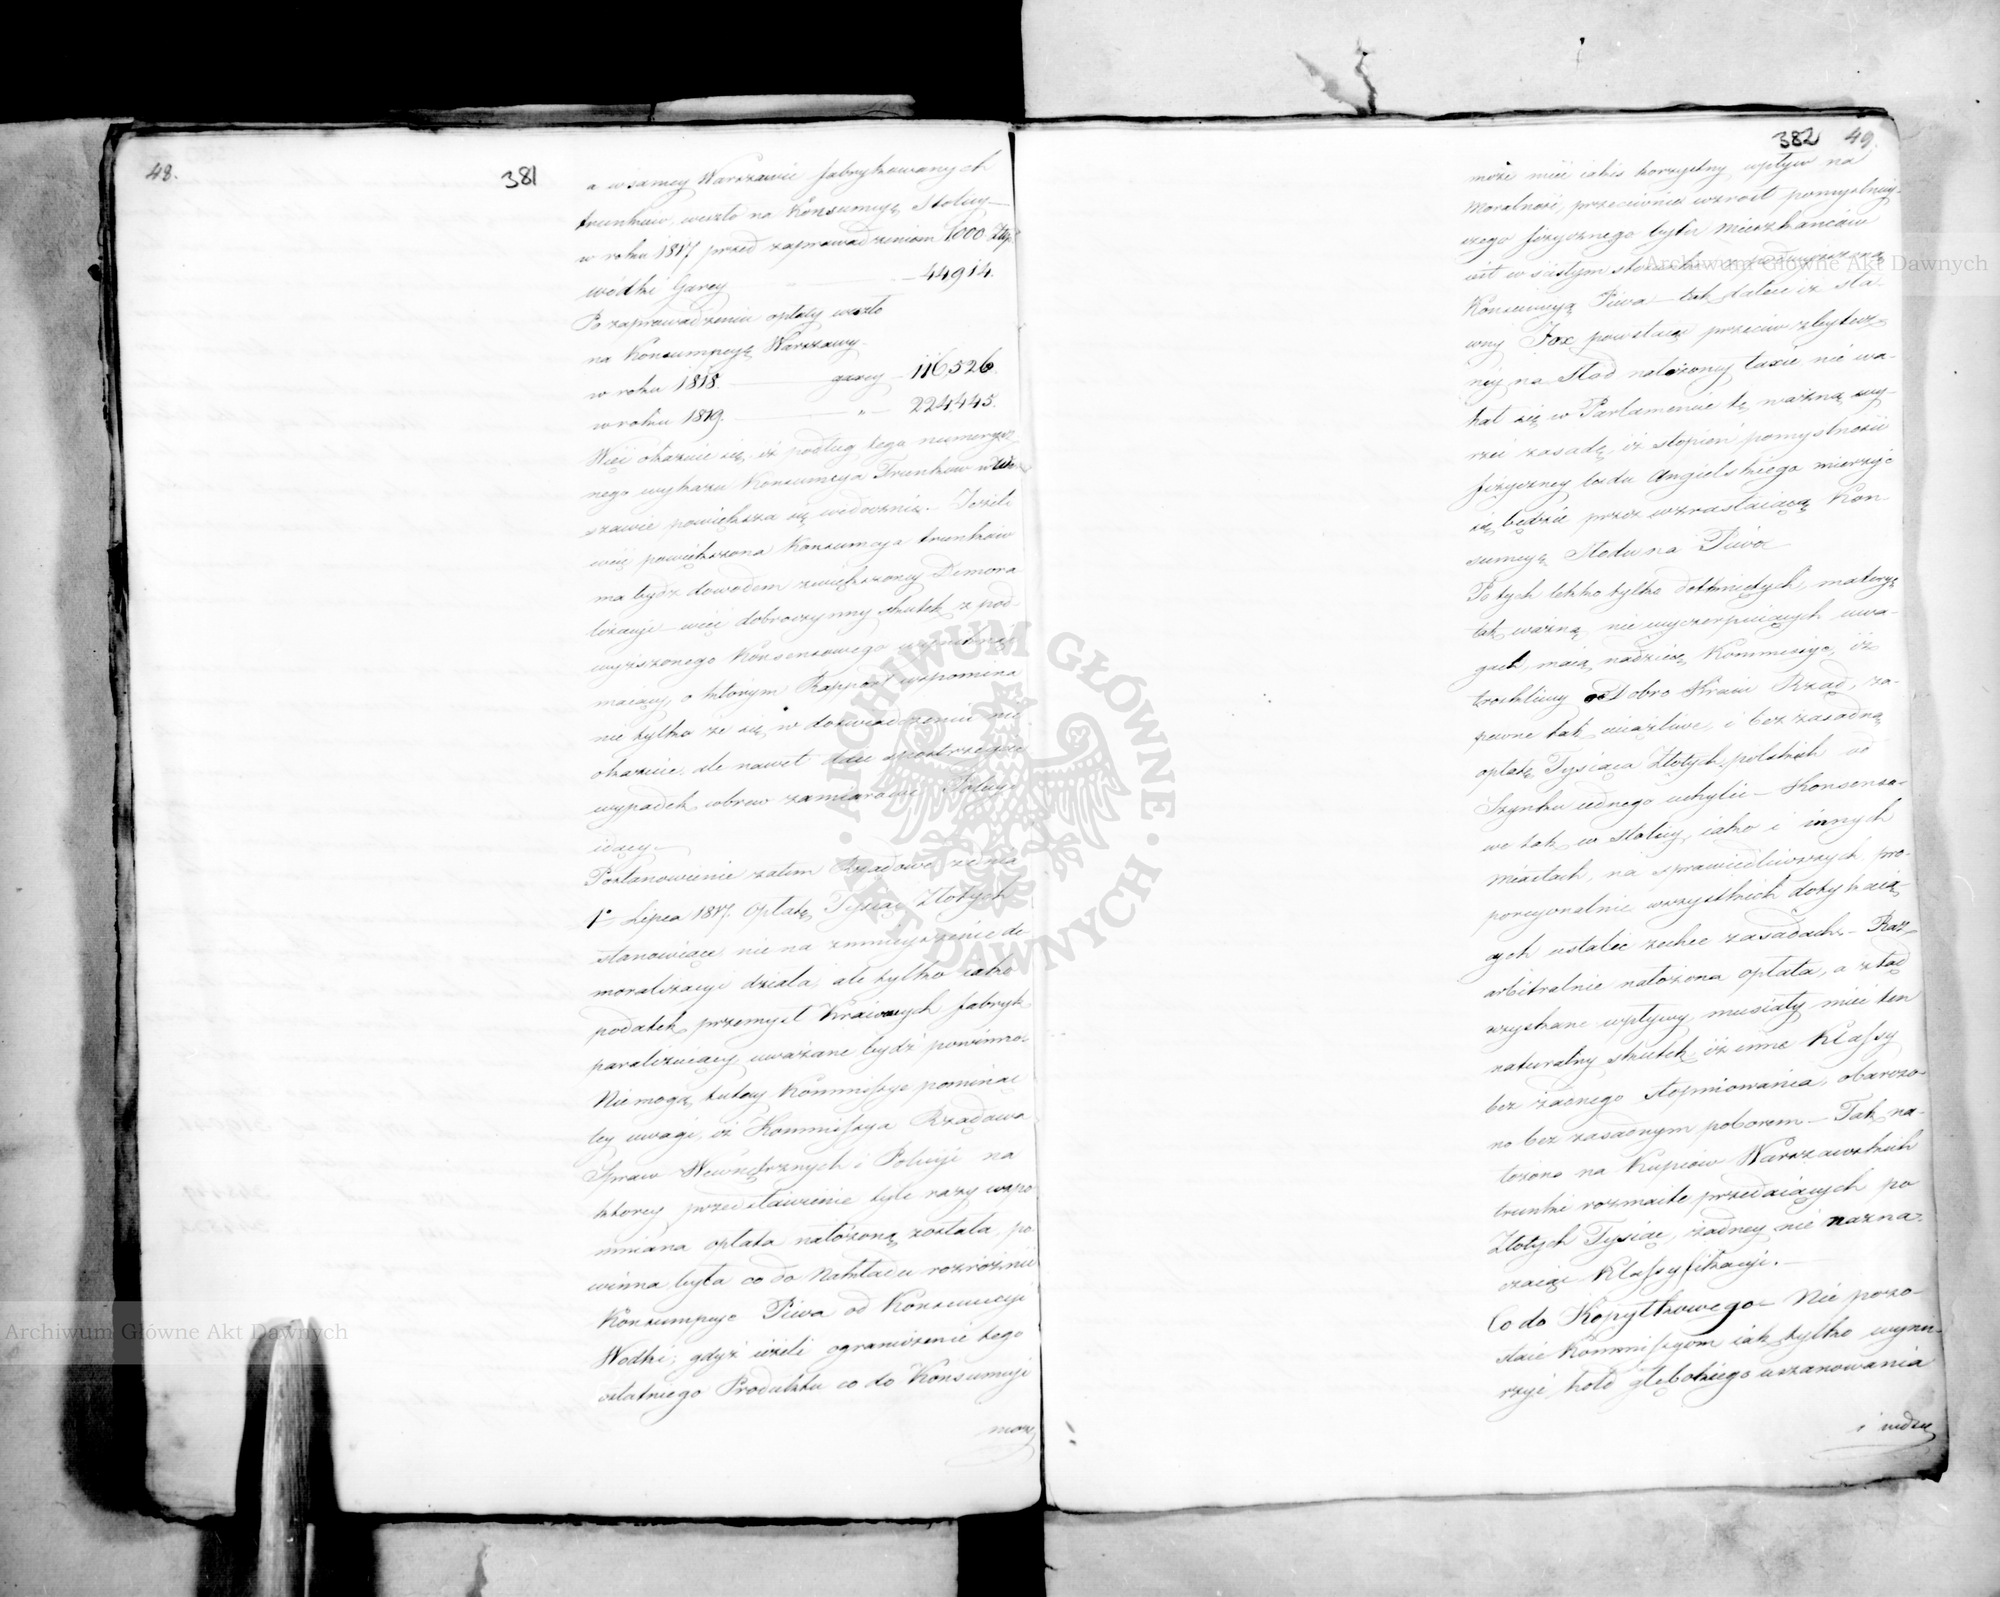 48.
381
a w samey Warszawie fabrykowanych
trunkow, weszło na Konsumcyą Stolicy
w roku 1817 przed zaprowadzeniem 1000 Złp.
wódki Garcy — 44914.
Po zaprowadzeniu opłaty weszło
na Konsumpcyą Warszawy.
w roku 1818. — garcy — 116,526.
w roku 1819. — " — 224,445.
Więc okazuie się, iż podług tego numerycz-
nego wykazu Konsumcya Trunkow w War-
szawie powiększa się widocznie. — Jeżeli
więc powiększona Konsumcya trunków
ma bydź dowodem zwiększoney Demora
lizacyi — więc dobroczynny skutek z pod-
wyższonego Konsensowego wyniknąć
maiący, o którym Rapport wspomina
nie tylko że się w doświadczeniu nie
okazuie, ale nawet daie spostrzegać
wypadek wbrew zamiarowi Policyi
idący.
Postanowienie zatem Rządowe z dnia
1o Lipca 1817. Opłatę Tysiąc Złotych
stanowiące, nie na zmnieyszenie de-
moralizacyi działa, ale tylko iako
podatek, przemysł Kraiowych fabryk
paraliżuiący uważane bydź powinno.
Nie mogą tutay Kommissye pominąć
tey uwagi, iż Kommissya Rządowa
Spraw Wewnętrznych i Policyi na
ktorey przedstawienie tyle razy wspo
mniana opłata nałożoną została, po
winna była co do Nakładu rozróżnić
Konsumpcye Piwa od Konsumcyi
Wodki; gdyż ieżeli ograniczenie tego
ostatniego Produktu co do Konsumcyi
może
382
49.
może mieć iakiś korzystny wpływ na
Moralność, przeciwnie wzrost pomyślniey-
szego fizycznego bytu Mieszkańców
iest w ścisłym stosunku z powiększoną
Konsumcyą Piwa — tak dalece iż sła
wny Fox powstaiąc przeciw zbytecz-
ney na Słod nałożoney taxie nie wa-
hał się w Parlamencie tę ważną wy-
rzec zasadę, iż stopień pomyślności
fizyczney ludu Angielskiego mierzyć
się będzie przez wzrastaiącą Kon
sumcyą Słodu na Piwo
Po tych lekko tylko dotkniętych, materyą
tak ważną nie wyczerpuiących uwa-
gach, maią nadzieię Kommissye, iż
troskliwy o Dobro Kraiu Rząd, za-
pewne tak uciążliwe, i bezzasadną
opłatę Tysiąca Złotych polskich od
Szynku iednego uchylić — Konsenso-
we tak w stolicy, iako i innych
Miastach, na sprawiedliwszych, pro-
porcyonalnie wszystkich dotykaią-
cych ustalić zechce zasadach. — Raz
arbitralnie nałożona opłata, a ztąd
uzyskane wpływy, musiały mieć ten
naturalny skutek, iż inne Klassy
bez żadnego stopniowania, obarczo-
no bez zasadnym poborem — Tak na-
łożono na Kupców Warszawskich
trunki rozmaite przedaiących po
Złotych Tysiąc, żadney nie nazna-
czaiąc Klassyfikacyi. —
Co do Kopytkowego — Nie pozo-
staie Kommissyom iak tylko wynu-
rzyć hołd głębokiego uszanowania
i wdzię
ARCHIWUM GŁÓWNE AKT DAWNYCH
Archiwum Główne Akt Dawnych
Archiwum Główne Akt Dawnych